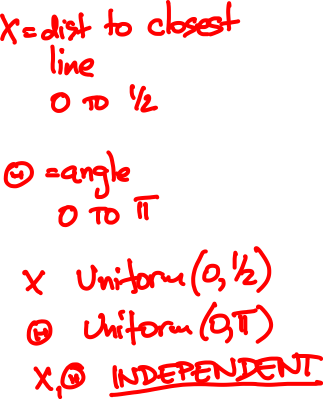 X = dist to closest
line
0 TO 1/2
Θ = angle
0 TO π
X Uniform (0, 1/2)
Θ Uniform (0, π)
X, Θ INDEPENDENT